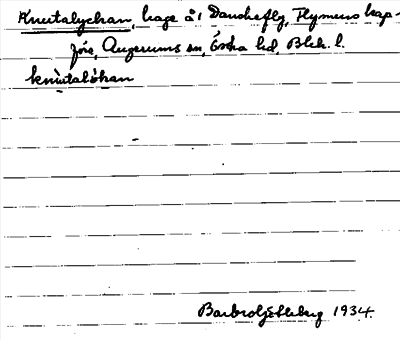 Knutalyckan, hage å 1 Danskefly, Flymens kap-
förs, Augerums sn, Östra hd, Blek. l.
knùtalókan
Barbro Ljétleberg 1934.